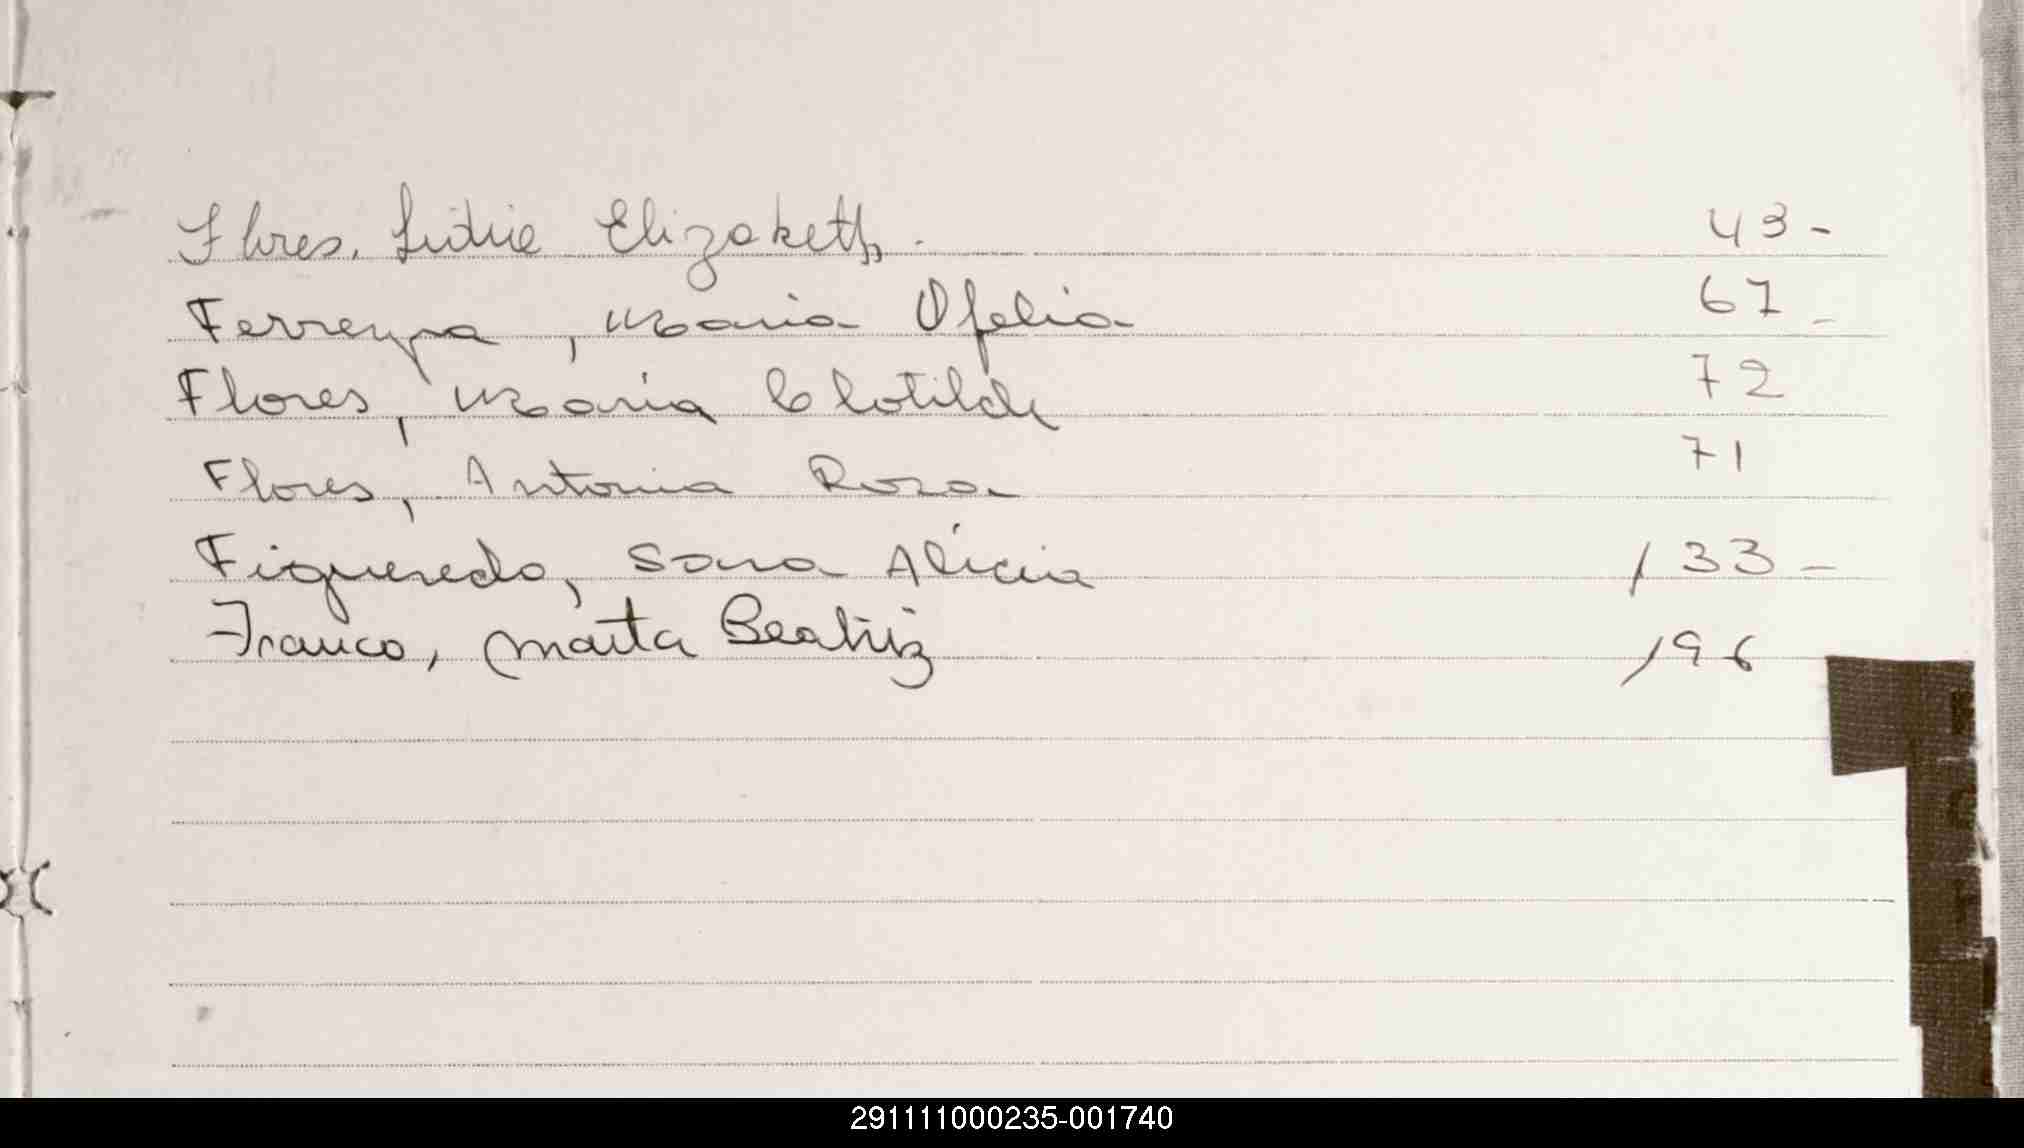 Flores, Lidia Elizabeth. 43-
Ferreyra, Maria Ofelia 67-
Flores, Maria Clotilde 72
Flores, Antonia Rosa 71
Figueredo, Sara Alicia 133-
Franco, Marta Beatriz 196
291111000235-001740